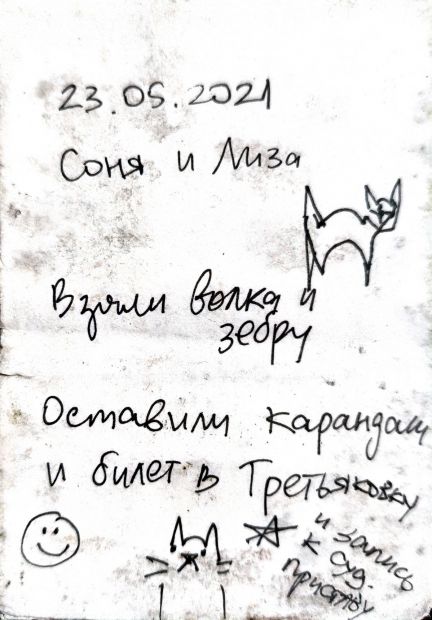 23.05.2021
Соня и Лиза
Взяли волка и
зебру
Оставили карандаш
и билет в Третьяковку
и запись
к суд.
приставу